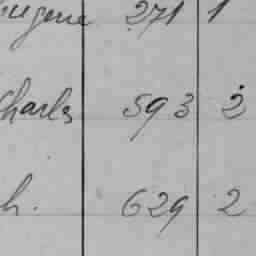 Eugene 271 1
Charles 593 2
h. 629 2